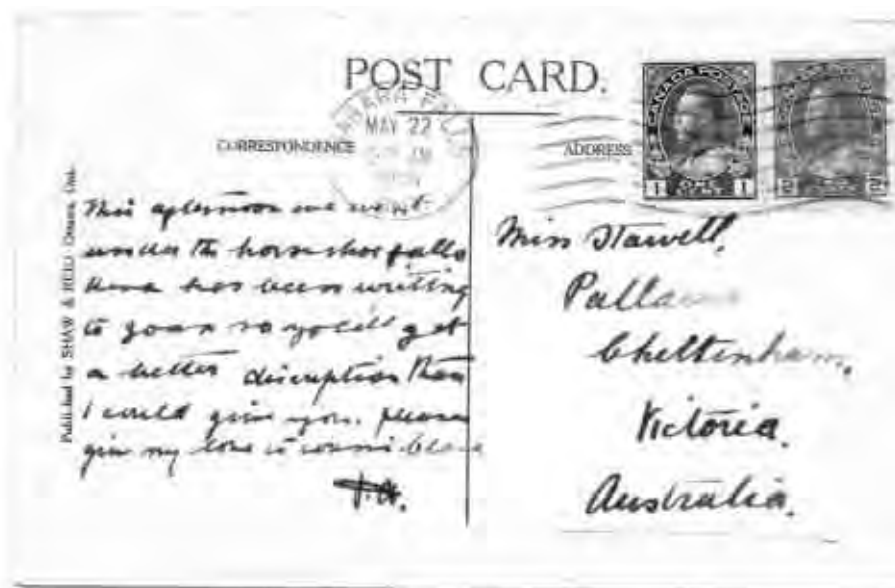 POST CARD.
MAY 22
CORRESPONDENCE
ADDRESS
CANADA POSTAGE
1 1
2 2
Published by SHAW & REED Ottawa, Ont.
This afternoon we went
under the horseshoe falls
has been writing
to Joan so you'll get
a better discription than
I could give you. please
give my love to
Miss Stawell,
Cheltenham,
Victoria.
Australia.